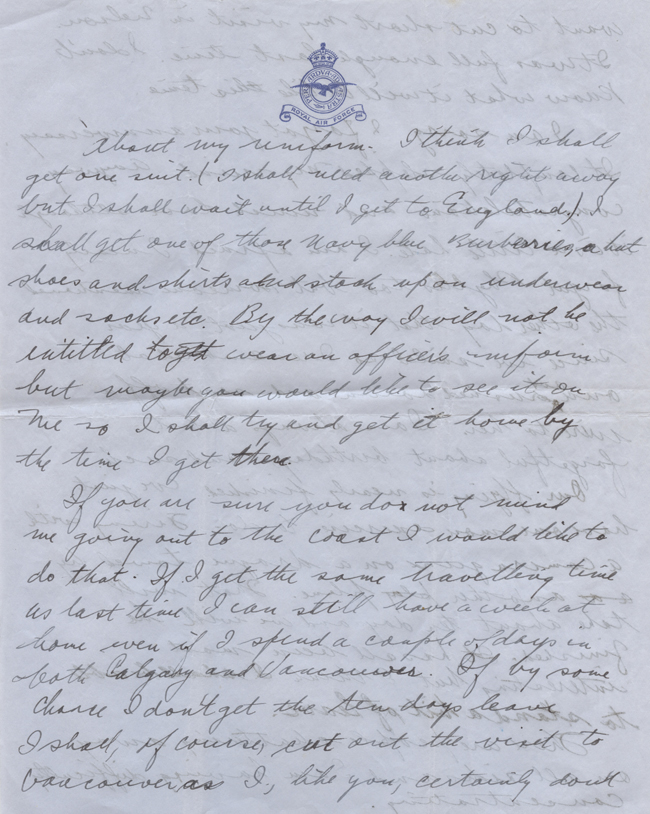 PER ARDVA AD ASTRA
ROYAL AIR FORCE
About my uniform. I think I shall
get one suit. (I shall need another right away
but I shall wait until I get to England.) I
shall get one of those navy blue Burberries, a hat
shoes and shirts and stock up on underwear
and socks etc. By the way I will not be
entitled to wear an officer's uniform
but maybe you would like to see it on
me so I shall try and get it home by
the time I get there.
If you are sure you do not mind
me going out to the coast I would like to
do that. If I get the same travelling time
as last time I can still have a week at
home even if I spend a couple of days in
both Calgary and Vancouver. If by some
chance I don't get the ten days leave
I shall, of course, cut out the visit to
Vancouver, as I, like you, certainly don't